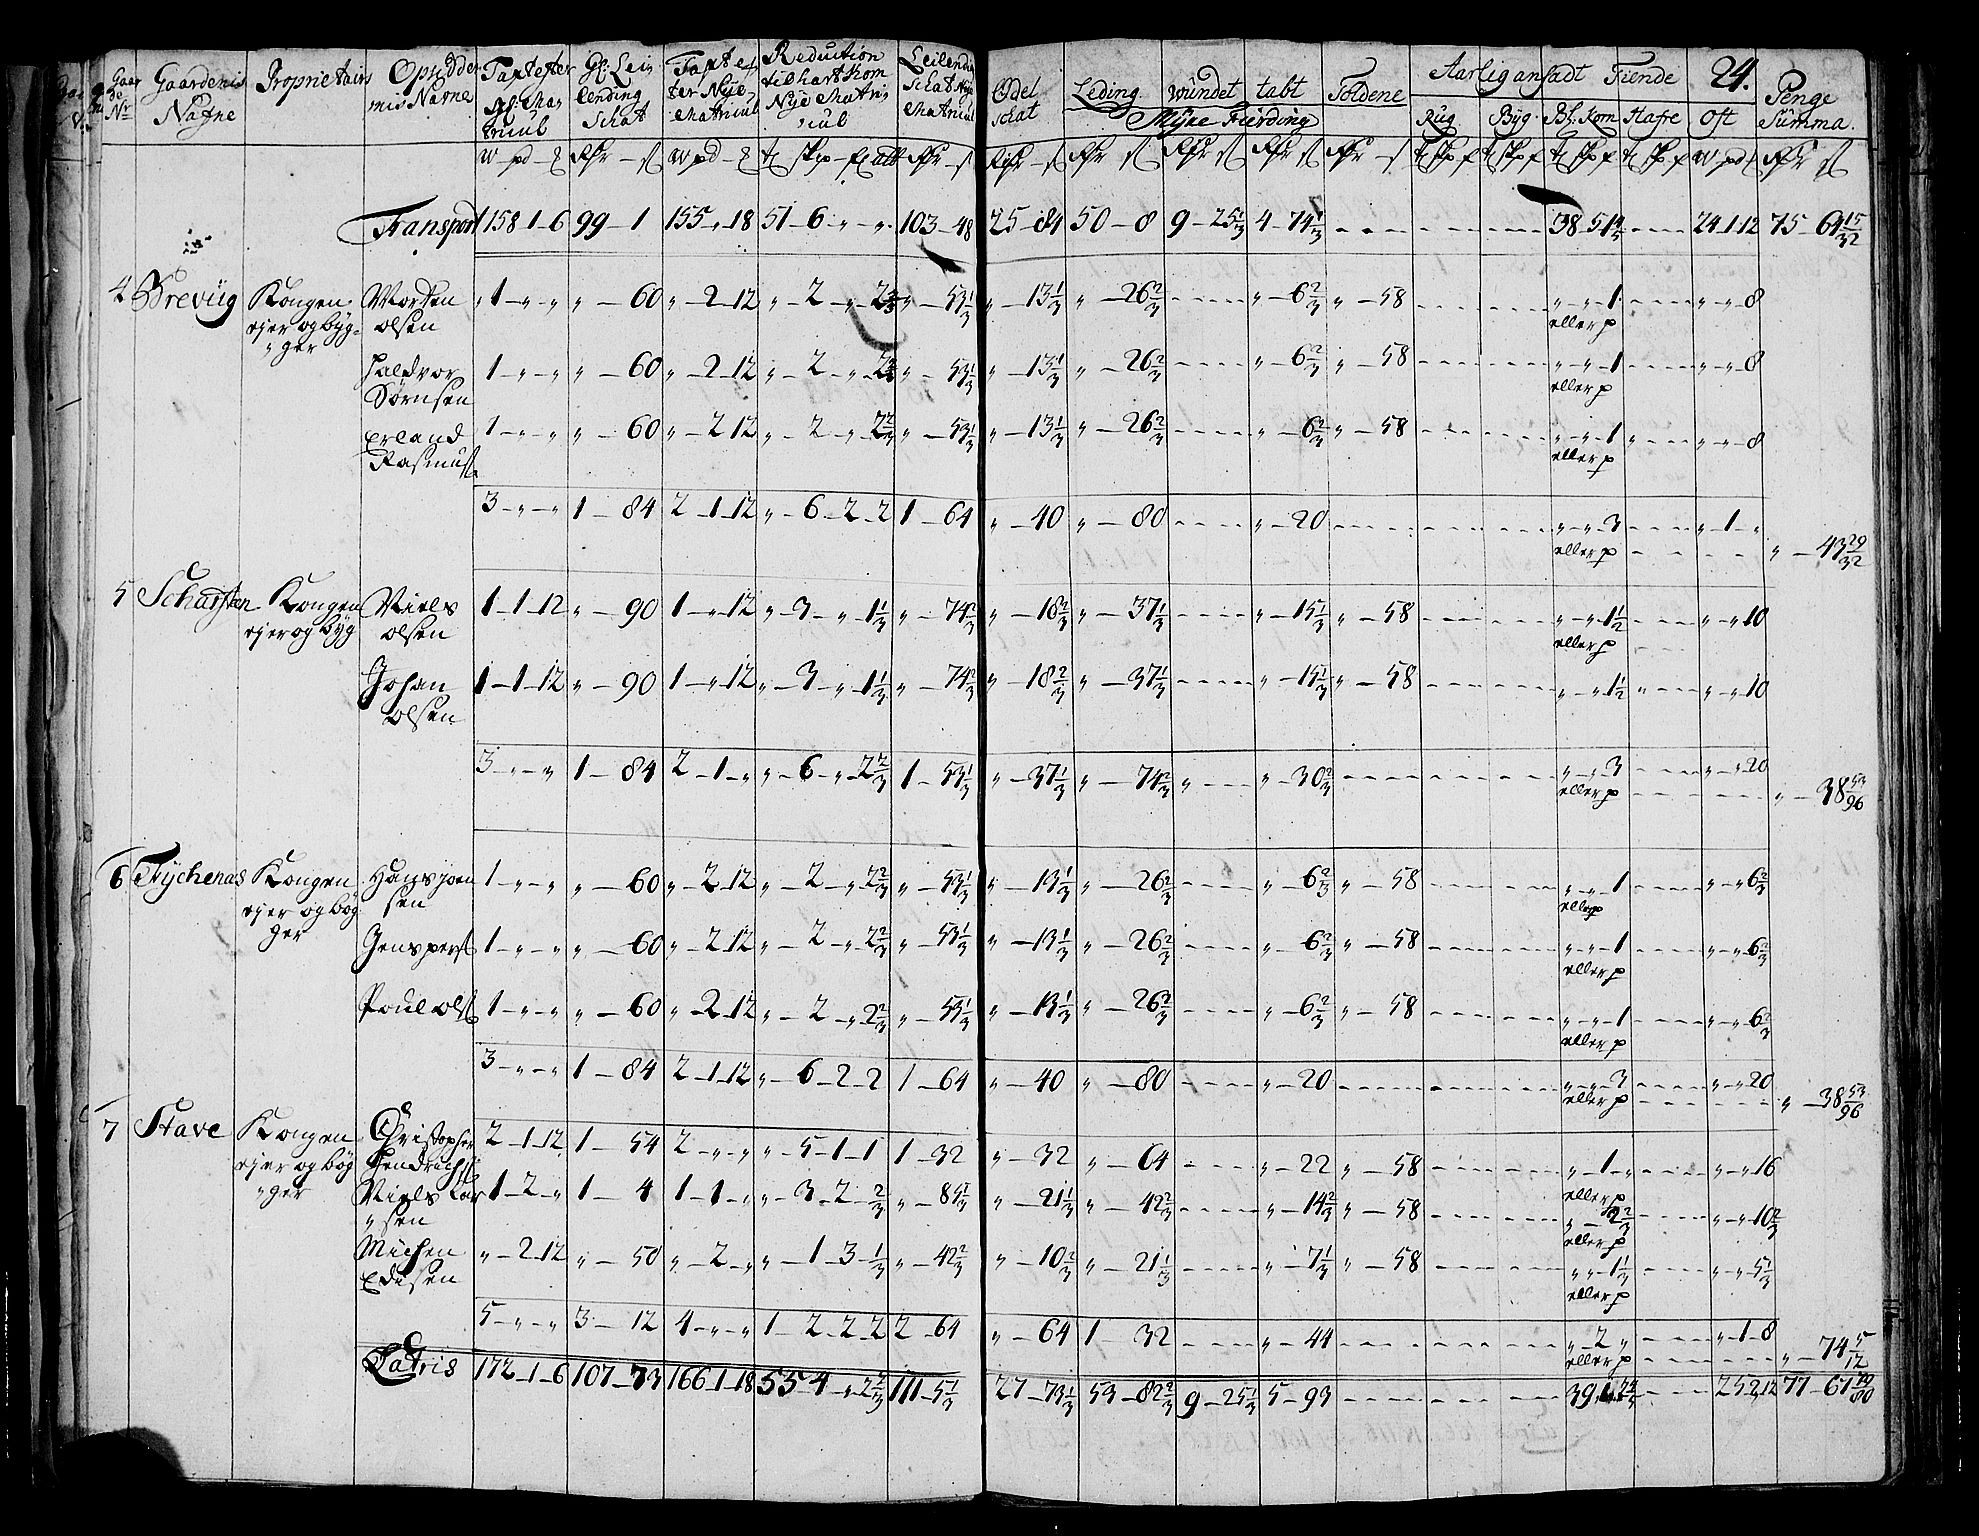 24.
Gaar de Nr | Gaardenis Nafne | Proprietairs | Opsidder nis Nafne | Taxt efter gl. Matricul | Gl. Leilending Schat | Taxt efter Nye Matricul | Reduction til hart Korn Nye Matricul | Leilending Schat Nye Matricul | Odel Schat | Leding | wisøret | tabt | Foldene | Aarlig ansadt Tiende | Penge Summa
Rug | Byg | Bl. Korn | Hafre | Ost
Transport | 158 1 6 | 99 - 1 | 155 „ 18 | 51 - 6 „ „ | 103 - 48 | 25 - 84 | 50 - 8 | 9 - 25 1/3 | 4 - 74 1/3 | 38 5 | 24 1 12 | 75 - 64 15/32
4 Brevüg | Kongen ejer og bygger | Morten olsen | 1 „ „ | „ 60 | „ 2 12 | „ 2 „ 2 2/3 | „ 53 1/3 | „ 13 1/3 | „ 26 2/3 | „ 6 2/3 | „ 58 | „ „ 1 eller p | „ „ 8
Haldvor Sørnsen | 1 „ „ | „ 60 | „ 2 12 | „ 2 „ 2 2/3 | „ 53 1/3 | „ 13 1/3 | „ 26 2/3 | „ 6 2/3 | „ 58 | „ „ 1 eller p | „ „ 8
Erland Rasmus | 1 „ „ | „ 60 | „ 2 12 | „ 2 „ 2 2/3 | „ 53 1/3 | „ 13 1/3 | „ 26 2/3 | „ 6 2/3 | „ 58 | „ „ 1 eller p | „ „ 8
3 „ „ | 1 - 84 | 2 1 12 | „ 6 2 2 | 1 - 64 | „ 40 | „ 80 | „ 20 | „ „ 3 eller p | „ 1 „ | „ 43 29/32
5 Scharsten | Kongen ejer og byg | Niels olsen | 1 1 12 | „ 90 | 1 „ 12 | „ 3 „ 1 1/3 | „ 74 2/3 | „ 18 2/3 | „ 37 1/3 | „ 15 1/3 | „ 58 | „ „ 1 1/2 eller p | „ „ 10
Johan olsen | 1 1 12 | „ 90 | 1 „ 12 | „ 3 „ 1 1/3 | „ 74 2/3 | „ 18 2/3 | „ 37 1/3 | „ 15 1/3 | „ 58 | „ „ 1 1/2 | „ „ 10
3 „ „ | 1 - 84 | 2 1 „ | „ 6 „ 2 2/3 | 1 - 53 1/3 | „ 37 1/3 | „ 74 2/3 | „ | „ 30 2/3 | „ „ 3 eller p | „ „ 20 | „ 38 53/96
6 Tychenas | Kongen ejer og bøg ger | Hans joensen | 1 „ „ | „ 60 | „ 2 12 | „ 2 „ 2 2/3 | „ 53 1/3 | „ 13 1/3 | „ 26 2/3 | „ 6 2/3 | „ 58 | „ „ 1 eller p | „ „ 6 2/3
Jens pers | 1 „ „ | „ 60 | „ 2 12 | „ 2 „ 2 2/3 | „ 53 1/3 | „ 13 1/3 | „ 26 2/3 | „ 6 2/3 | „ 58 | „ „ 1 eller p | „ „ 6 2/3
Poul ols | 1 „ „ | „ 60 | „ 2 12 | „ 2 „ 2 2/3 | „ 53 1/3 | „ 13 1/3 | „ 26 2/3 | „ 6 2/3 | „ 58 | „ „ 1 eller p | „ „ 6 2/3
3 „ „ | 1 - 84 | 2 1 12 | „ 6 2 2 | 1 - 64 | „ 40 | „ 80 | „ 20 | „ „ 3 eller p | „ „ 20 | „ 38 53/96
7 Stave | Kongen ejer og bøg „ ger | Christopher Hendrichs | 2 1 12 | 1 - 54 | 2 „ „ | „ 5 1 1 | 1 - 32 | „ 32 | „ 64 | „ 22 | „ 58 | „ 1 „ eller p | „ „ 16
Niels Lar „ sen | 1 2 „ | 1 - 4 | 1 1 „ | „ 3 2 2/3 | „ 85 1/3 | „ 21 1/3 | „ 42 2/3 | „ 14 2/3 | „ 58 | „ 2 2/3 eller p | „ „ 10 2/3
Michen Edisen | „ 2 12 | „ 50 | „ 2 „ | „ 1 3 1/3 | „ 42 2/3 | „ 10 2/3 | „ 21 1/3 | „ 7 1/3 | „ 58 | „ „ 1 1/3 eller p | „ „ 5 1/3
5 „ „ | 3 - 12 | 4 „ „ | 1 2 2 2 | 2 - 64 | „ 64 | 1 - 32 | „ 44 | „ 2 „ eller p | „ 1 8 | „ 74 5/12
Latris | 172 1 6 | 107 - 73 | 166 1 18 | 53 4 „ 2 2/3 | 111 - 5 1/3 | 27 - 73 1/3 | 53 - 82 2/3 | 9 - 25 1/3 | 5 - 93 | 39 | 25 2 12 | 77 - 67